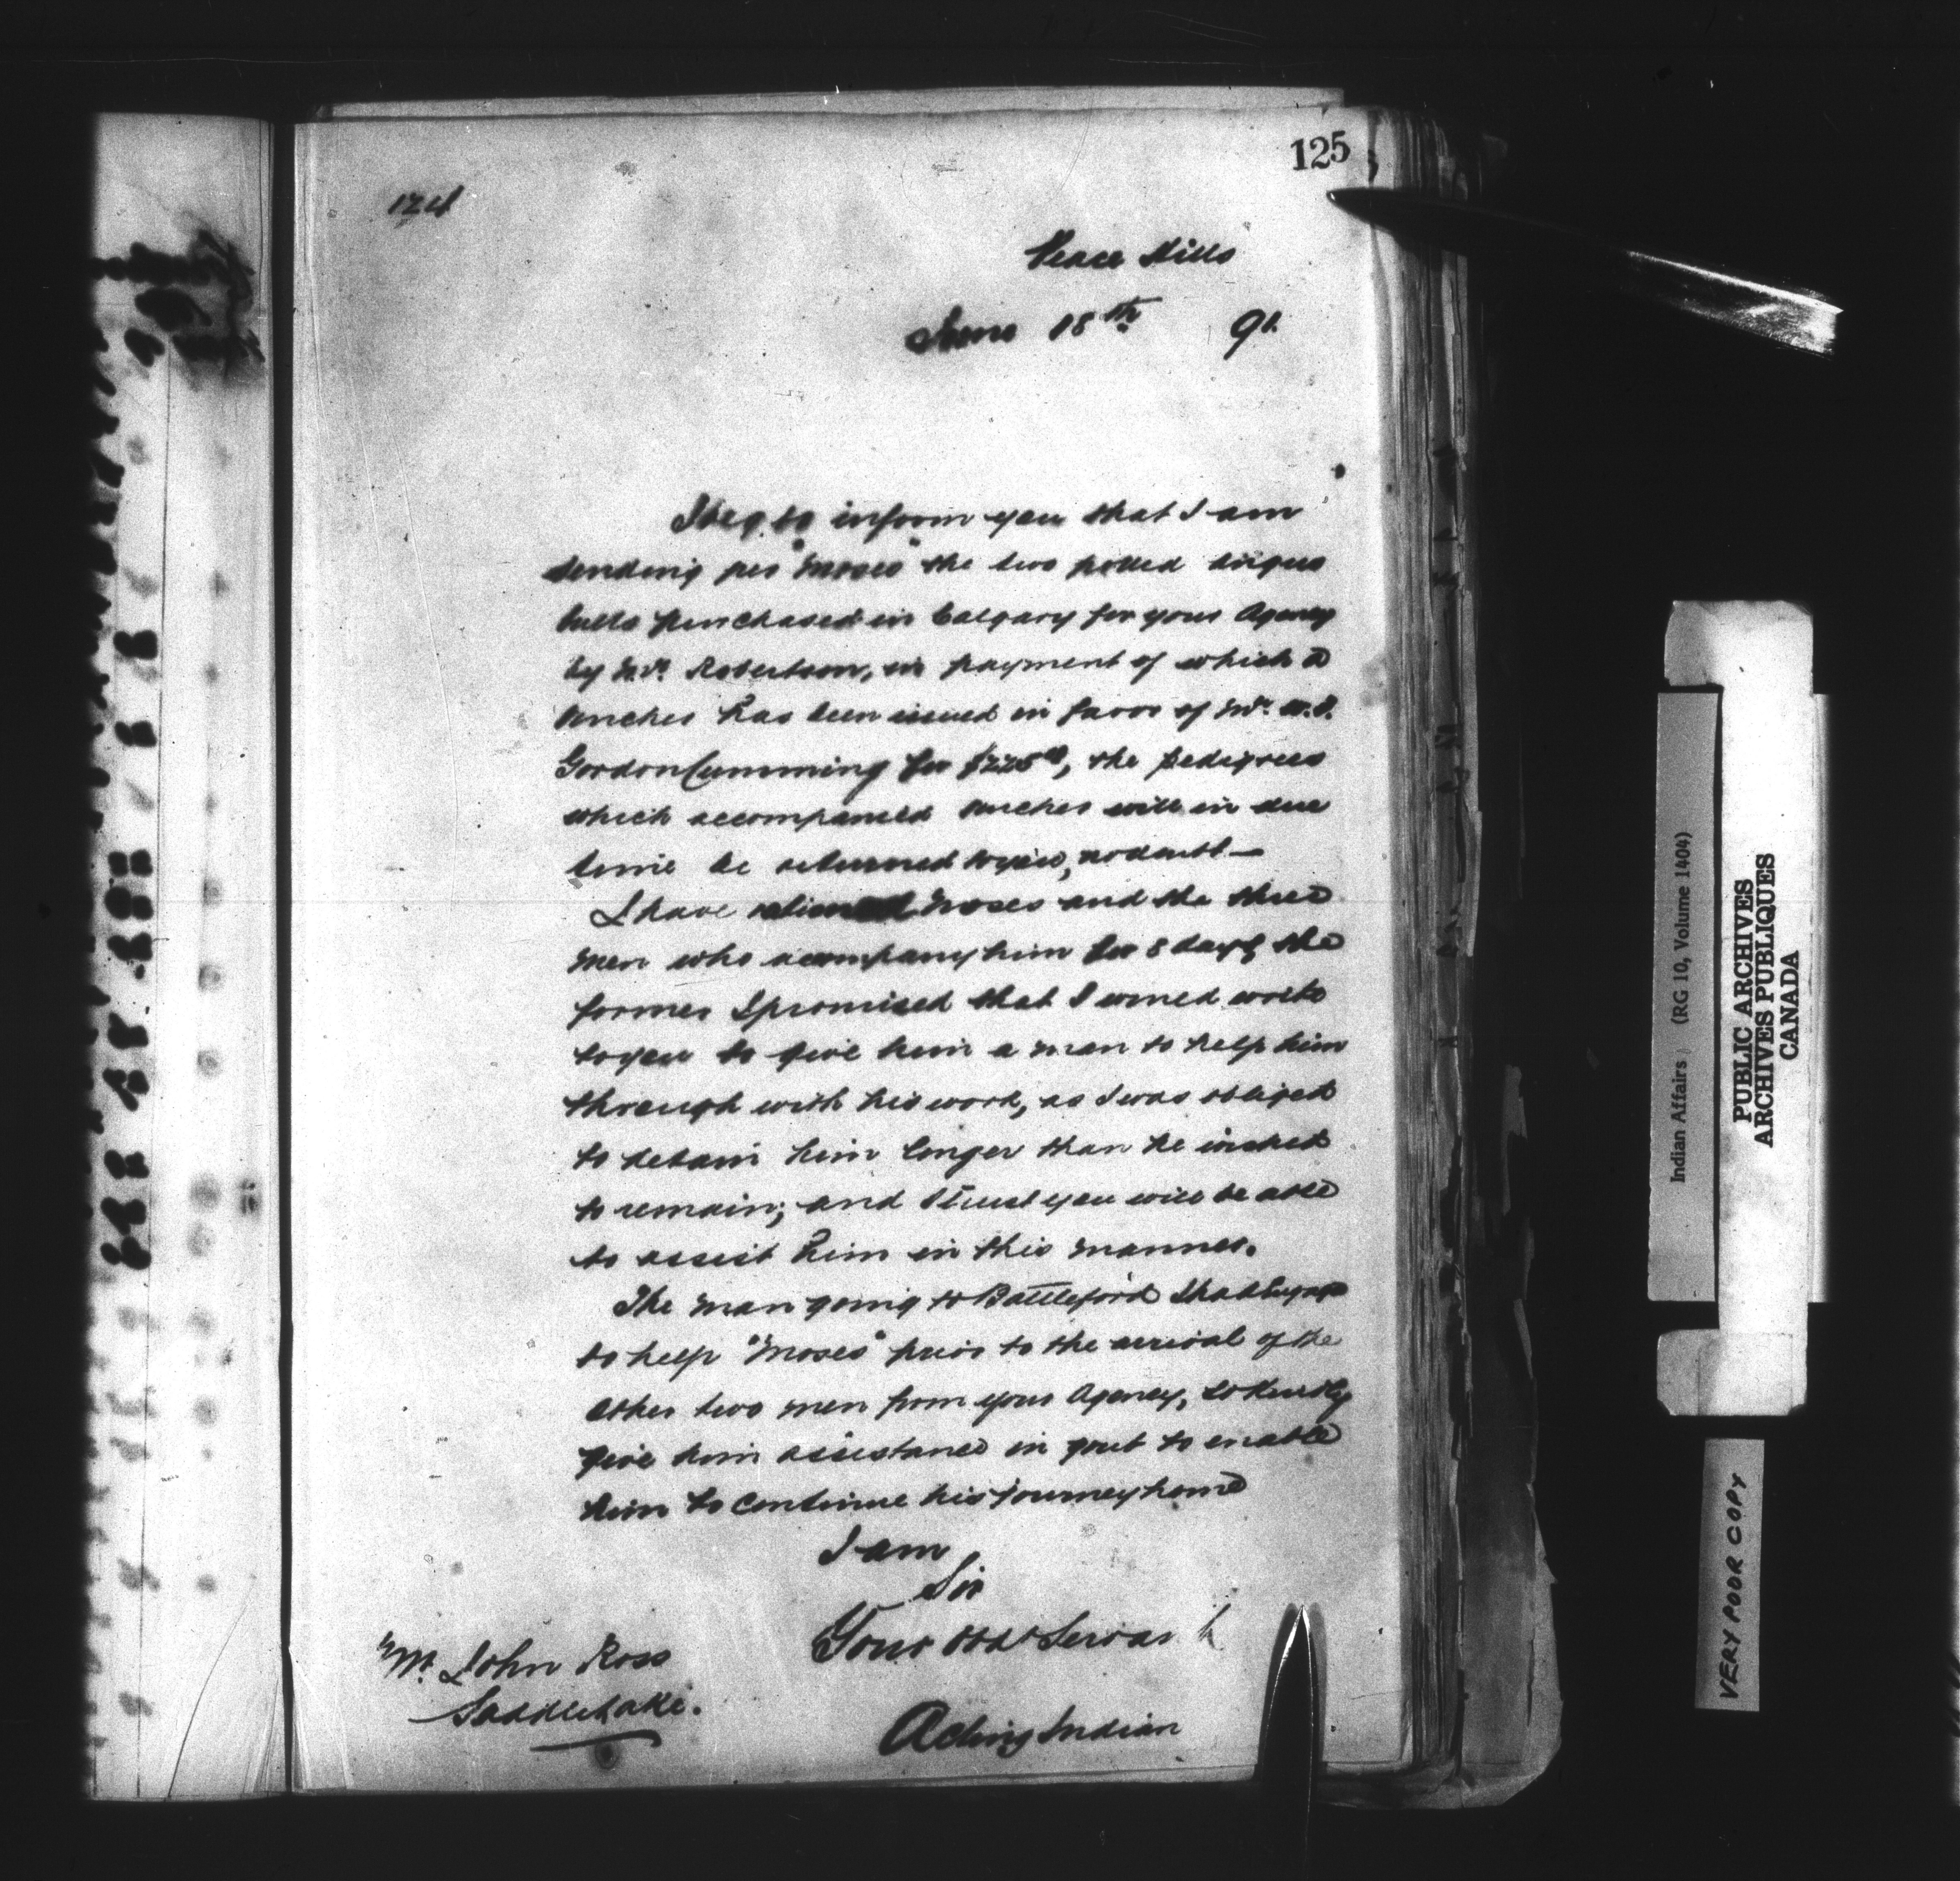 125
124
Peace Hills
June 18th 91.
I beg to inform you that I am
sending per "Moses" the two polled angus
bulls purchased in Calgary for your Agency
by Mr. Robertson, in payment of which a
voucher has been issued in favor of Mr.
Gordon Cumming for $225, the pedigrees
which accompanied voucher will in due
time be returned to you, no doubt—
I have rationed Moses and the three
men who accompany him for 8 days, the
former I promised that I would write
to you to give him a man to help him
through with his work, as I was obliged
to detain him longer than he wished
to remain; and I trust you will be able
to assist him in this manner.
The man going to Battleford
to help "Moses" prior to the arrival of the
other two men from your Agency, so kindly
give him assistance in grub to enable
him to continue his journey home
I am
Sir
Your Obdt Servant
Mr. John Ross
Saddle Lake.
Acting Indian
Indian Affairs (RG 10, Volume 1404)
PUBLIC ARCHIVES
ARCHIVES PUBLIQUES
CANADA
VERY POOR COPY